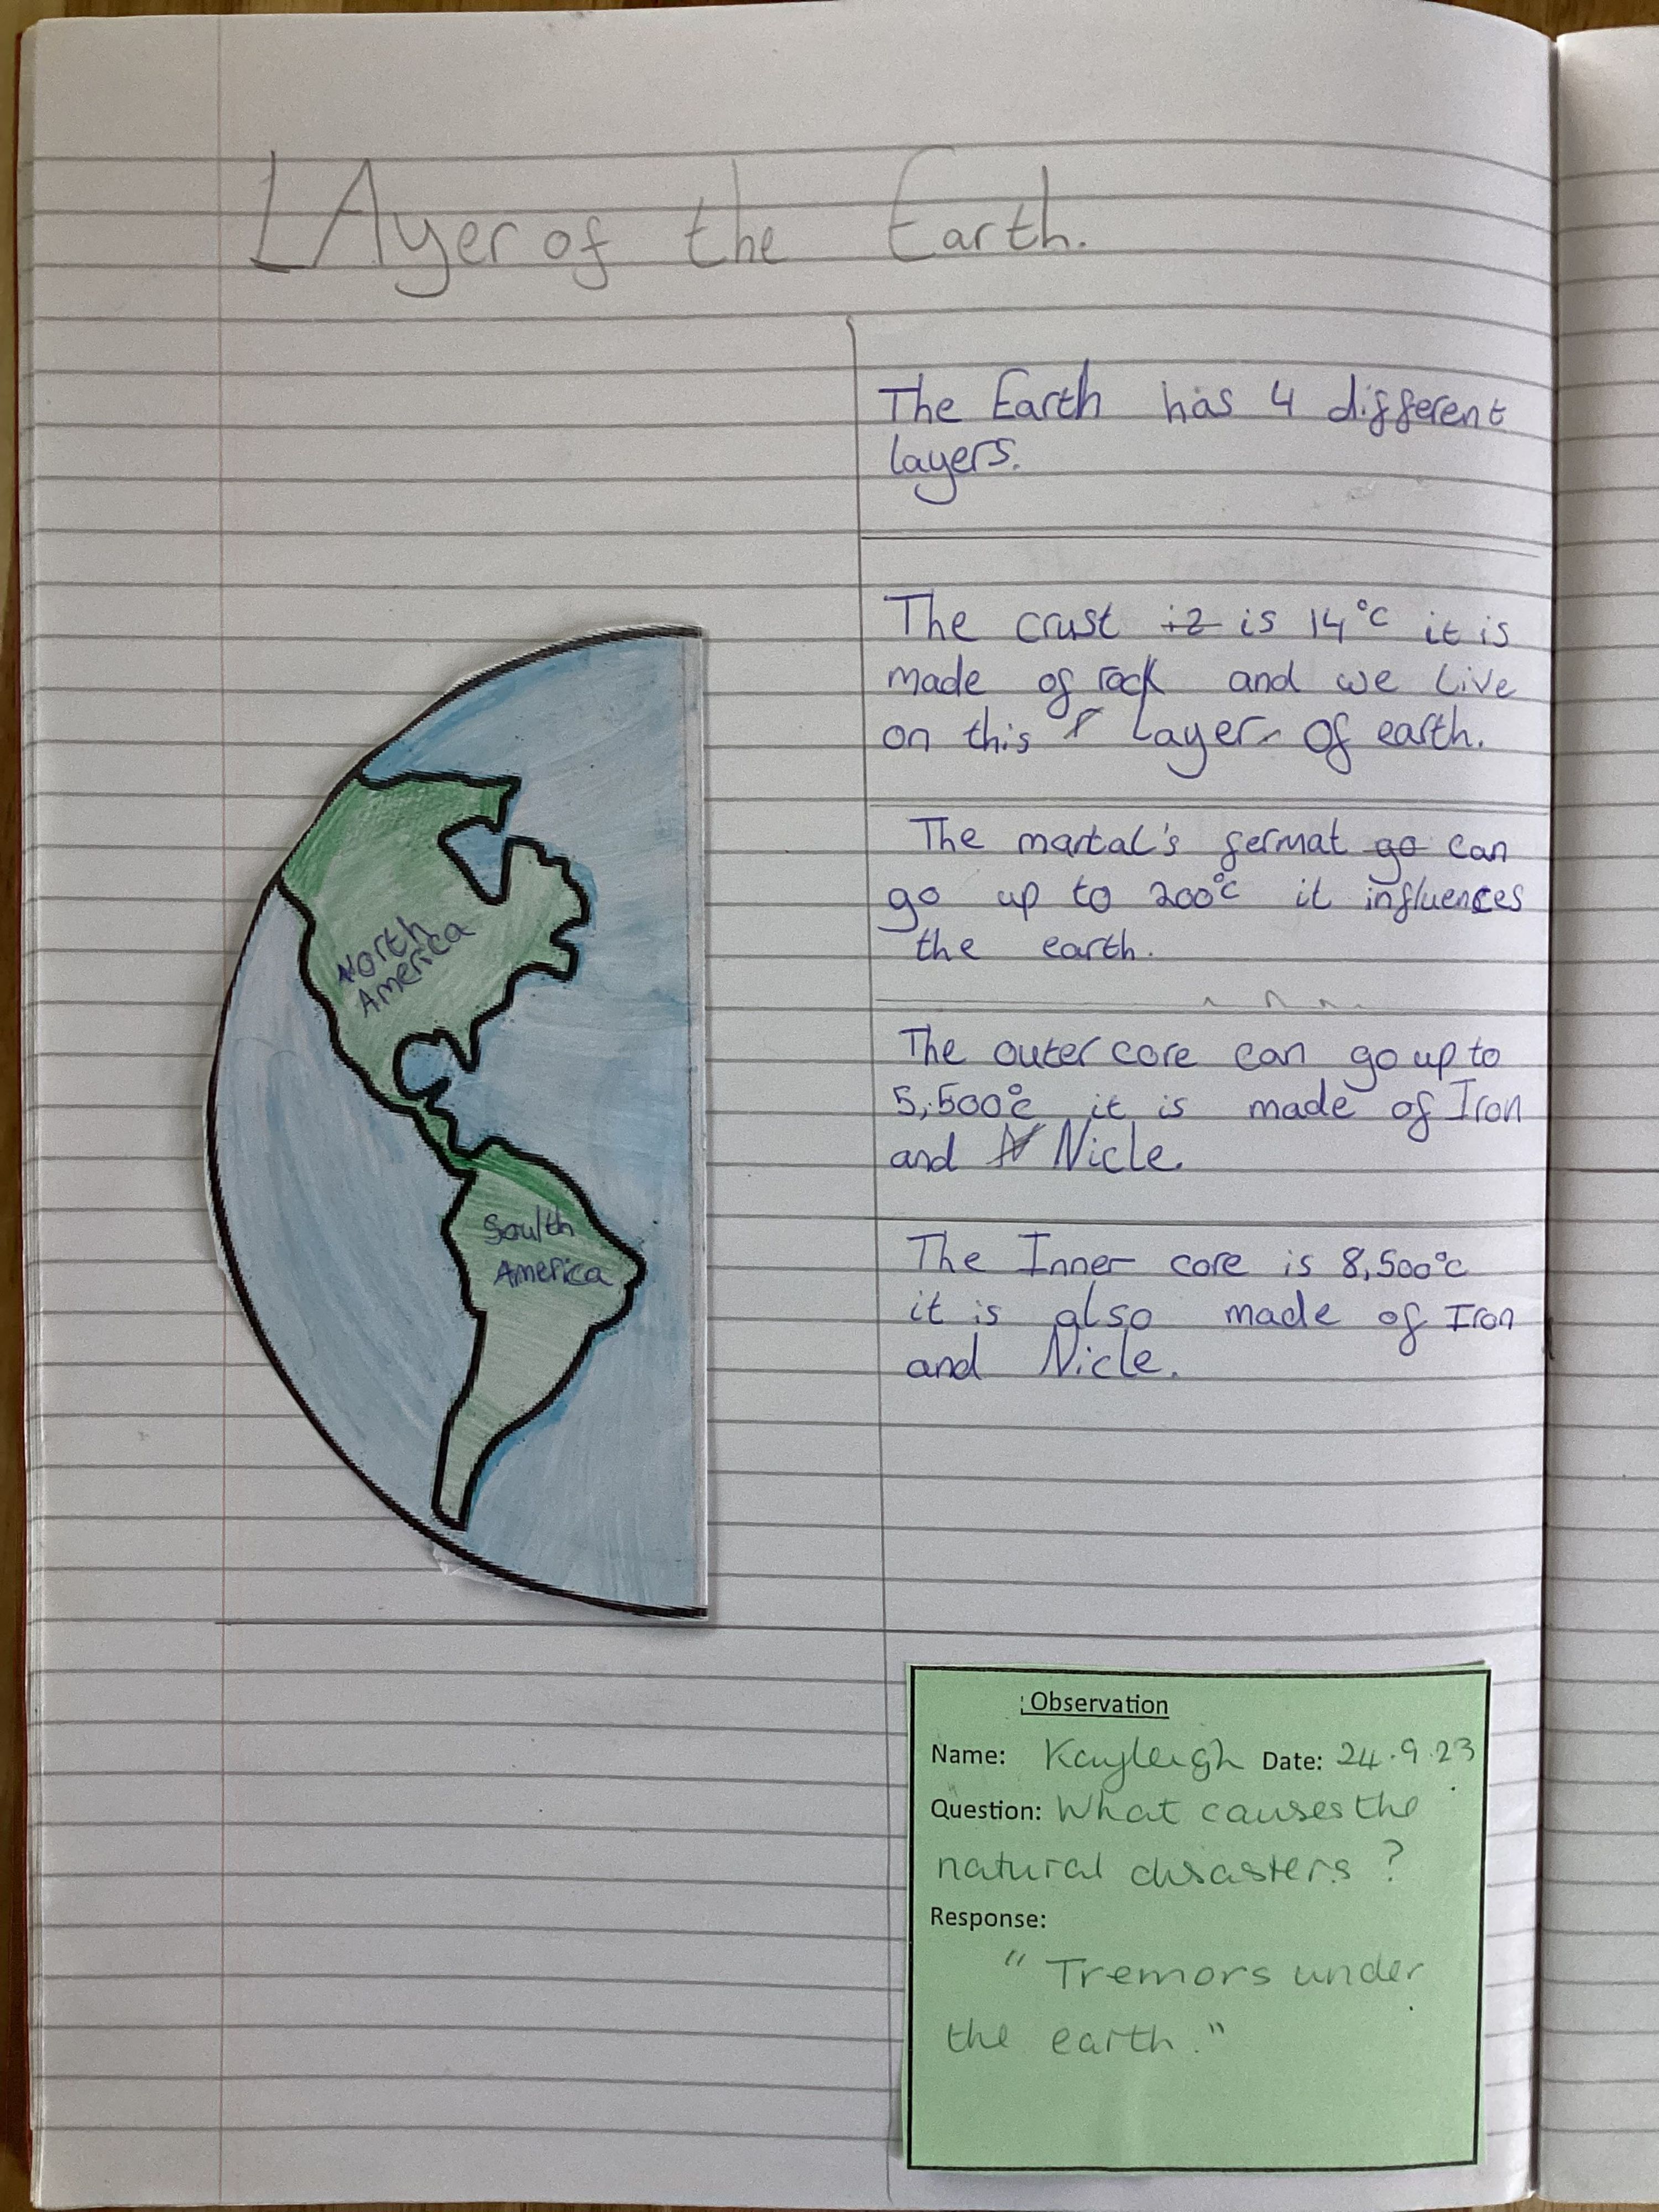 LAyer of the Earth.
North
America
South
America
The Earth has 4 different
layers.
The crust is 14°c it is
made of rock and we live
on this Layer of earth.
The martal's fermat go can
go up to 200°c it influences
the earth.
The outer core can go up to
5,500°c it is made of Iron
and Nicle.
The Inner core is 8,500°c
it is also made of Iron
and Nicle.
Observation
Name: Kayleigh Date: 24.9.23
Question: What causes the
natural disasters?
Response:
"Tremors under
the earth."